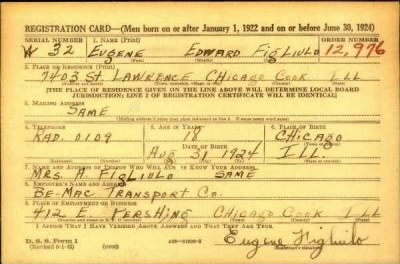 REGISTRATION CARD—(Men born on or after January 1, 1922 and on or before June 30, 1924)
SERIAL NUMBER 1. NAME (Print) ORDER NUMBER
W 32 EUGENE EDWARD FIGLIULO 12,976
(First) (Middle) (Last)
2. PLACE OF RESIDENCE (Print)
7403 ST. LAWRENCE CHICAGO COOK ILL
(Number and street) (Town, township, village, or city) (County) (State)
[THE PLACE OF RESIDENCE GIVEN ON THE LINE ABOVE WILL DETERMINE LOCAL BOARD
JURISDICTION; LINE 2 OF REGISTRATION CERTIFICATE WILL BE IDENTICAL]
3. MAILING ADDRESS
SAME
4. TELEPHONE 5. AGE IN YEARS 6. PLACE OF BIRTH
RAD. 0109 18 CHICAGO
DATE OF BIRTH
AUG 31 1924 ILL.
7. NAME AND ADDRESS OF PERSON WHO WILL ALWAYS KNOW YOUR ADDRESS
MRS. A. FIGLIULO SAME
8. EMPLOYER'S NAME AND ADDRESS
BE-MAC TRANSPORT CO.
9. PLACE OF EMPLOYMENT OR BUSINESS
412 E. PERSHING CHICAGO COOK ILL
I AFFIRM THAT I HAVE VERIFIED ABOVE ANSWERS AND THAT THEY ARE TRUE.
D. S. S. Form 1
(Revised 6-1-42)
Eugene Figliulo